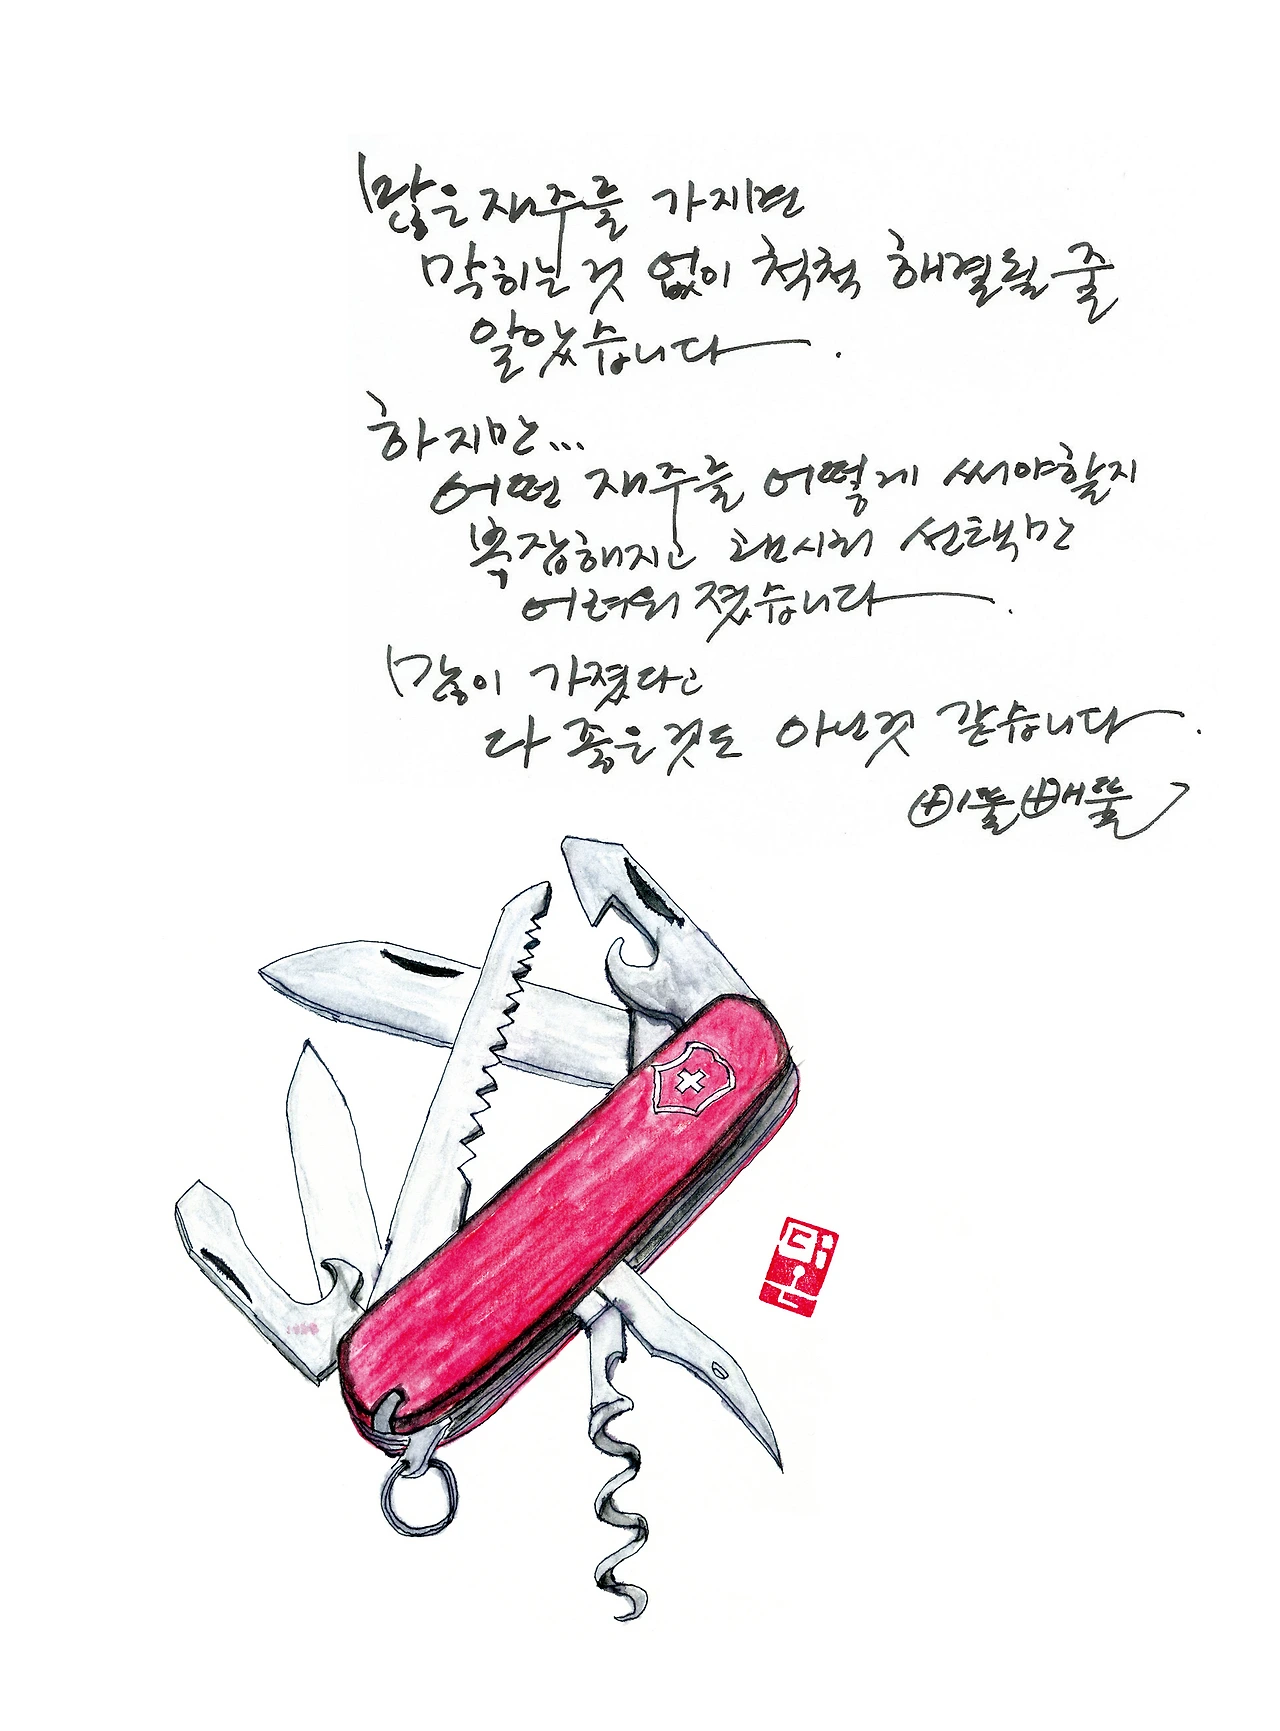 많은 재주를 가지면
막히는 것 없이 척척 해결될 줄
알았습니다.
하지만...
어떤 재주를 어떻게 써야할지
복잡해지고 괜시리 선택만
어려워 졌습니다.
많이 가졌다고
다 좋은것도 아닌것 같습니다.
삐뚤빼뚤